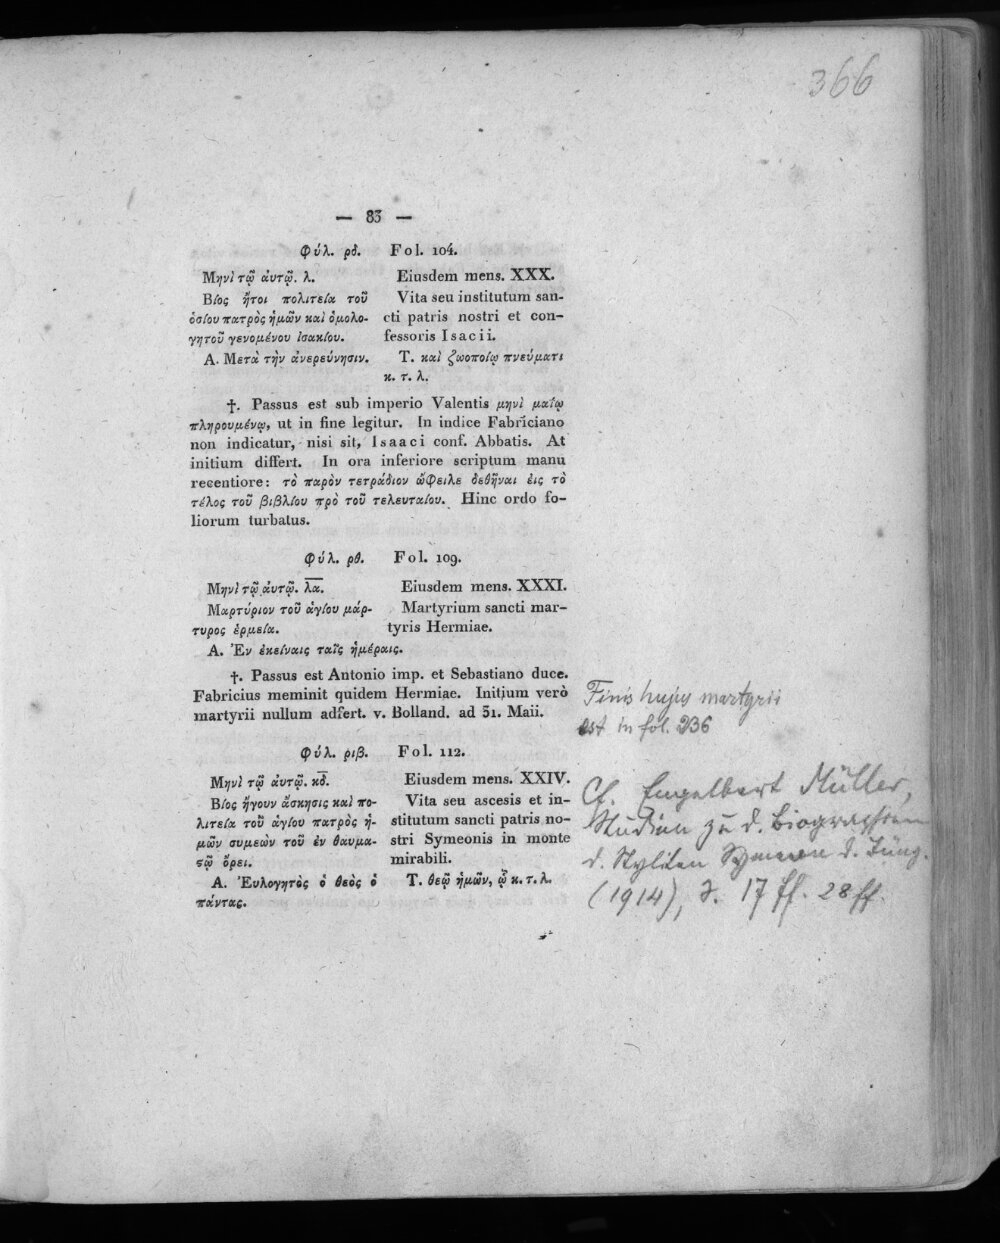 366
— 83 —
Φύλ. ρδ. Fol. 104.
Μηνὶ τῷ ἀυτῷ. λ.
Βίος ἤτοι πολιτεία τοῦ
ὁσίου πατρὸς ἡμῶν καὶ ὁμολο-
γητοῦ γενομένου ἰσακίου.
Α. Μετὰ τὴν ἀνερεύνησιν.
Eiusdem mens. XXX.
Vita seu institutum san-
cti patris nostri et con-
fessoris Isacii.
T. καὶ ζωοποίῳ πνεύματι
κ. τ. λ.
†. Passus est sub imperio Valentis μηνὶ μαίῳ
πληρουμένῳ, ut in fine legitur. In indice Fabriciano
non indicatur, nisi sit, Isaaci conf. Abbatis. At
initium differt. In ora inferiore scriptum manu
recentiore: τὸ παρὸν τετράδιον ὤφειλε δεθῆναι ἐις τὸ
τέλος τοῦ βιβλίου πρὸ τοῦ τελευταίου. Hinc ordo fo-
liorum turbatus.
Φύλ. ρθ. Fol. 109.
Μηνὶ τῷ ἀυτῷ. λα.
Μαρτύριον τοῦ ἁγίου μάρ-
τυρος ἑρμεία.
Α. Ἐν ἐκείναις ταῖς ἡμέραις.
Eiusdem mens. XXXI.
Martyrium sancti mar-
tyris Hermiae.
†. Passus est Antonio imp. et Sebastiano duce.
Fabricius meminit quidem Hermiae. Initium verò
martyrii nullum adfert. v. Bolland. ad 31. Maii.
Finis hujus martyrii
est in fol. 236
Φύλ. ριβ. Fol. 112.
Μηνὶ τῷ ἀυτῷ. κδ.
Βίος ἤγουν ἄσκησις καὶ πο-
λιτεία τοῦ ἁγίου πατρὸς ἡ-
μῶν συμεὼν τοῦ ἐν θαυμα-
στῷ ὄρει.
Α. Ἐυλογητὸς ὁ θεὸς ὁ
πάντας.
Eiusdem mens. XXIV.
Vita seu ascesis et in-
stitutum sancti patris no-
stri Symeonis in monte
mirabili.
T. θεῷ ἡμῶν, ᾧ κ. τ. λ.
Cf. Engelbert Müller,
Studien zu d. Biographien
d. Styliten Symeon d. Jüng.
(1914), S. 17 ff. 28 ff.